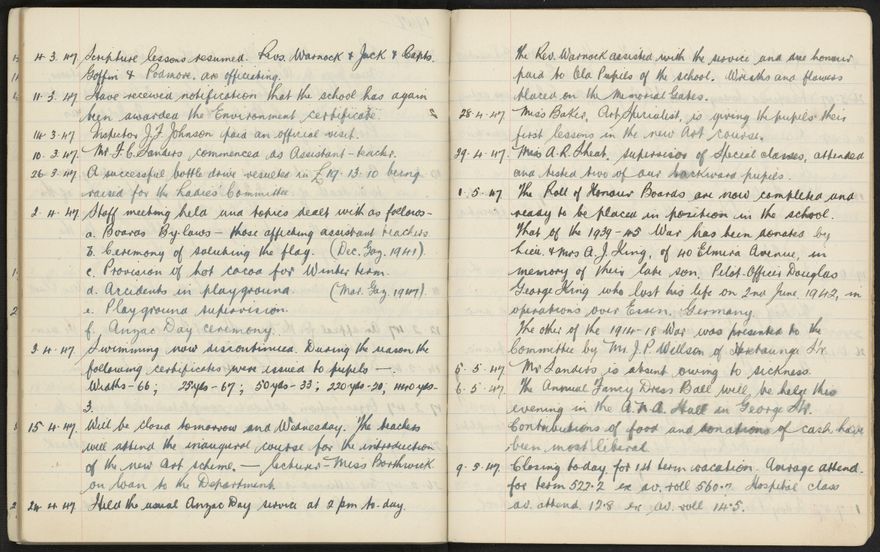 4.3.47 Scripture lessons resumed. Revs. Warnock & Jack & Capts.
Goffin & Podmore are officiating.
11.3.47 Have received notification that the school has again
been awarded the Environment certificate.
14.3.47 Inspector J.F. Johnson paid an official visit.
10.3.47 Mr F.C. Sanders commenced as Assistant-teacher.
26.3.47 A successful bottle drive resulted in £19.13.10 being
raised for the Ladies' Committee.
2.4.47 Staff meeting held and topics dealt with as follows-
a. Boards By-laws - those affecting assistant teachers
b. Ceremony of saluting the flag. (Dec. Gaz. 1941)
c. Provision of hot cocoa for Winter term.
d. Accidents in playground (Mar. Gaz. 1947)
e. Playground supervision.
f. Anzac Day ceremony.
3.4.47 Swimming now discontinued. During the season the
following certificates were issued to pupils -.
Widths-66; 25yds-67; 50yds-33; 220yds-20; 440yds-
3.
15.4.47 Will be closed tomorrow and Wednesday. The teachers
will attend the inaugural course for the introduction
of the new Art scheme. - lecturer Miss Borthwick
on loan to the Department.
24.4.47 Held the usual Anzac Day service at 2 pm to-day.
The Rev. Warnock assisted with the service and due honour
paid to Old Pupils of the school. Wreaths and flowers
placed on the Memorial Gates.
28.4.47 Miss Baker, Art Specialist, is giving the pupils their
first lessons in the new Art course.
29.4.47 Miss A.R. Sheat, supervisor of Special classes, attended
and tested two of our backward pupils.
1.5.47 The Roll of Honour Boards are now completed and
ready to be placed in position in the school.
That of the 1939-45 War has been donated by
& Mrs A.J. King, of 40 Elmira Avenue, in
memory of their late son, Pilot-Officer Douglas
George King who lost his life on 2nd June, 1942, in
operations over Essen, Germany.
The other of the 1914-18 War was presented to the
Committee by Mr. J.P. Willson of Heretaunga St.
5.5.47 Mr Sanders is absent owing to sickness.
6.5.47 The Annual Fancy Dress Ball will be held this
evening in the Hall in George St.
Contributions of food and donations of cash have
been most liberal.
9.5.47 Closing to-day for 1st term vacation. Average attend.
for term 522.2 ex av. roll 560.7 Hospital class
av. attend. 12.8 ex av. roll 14.5.